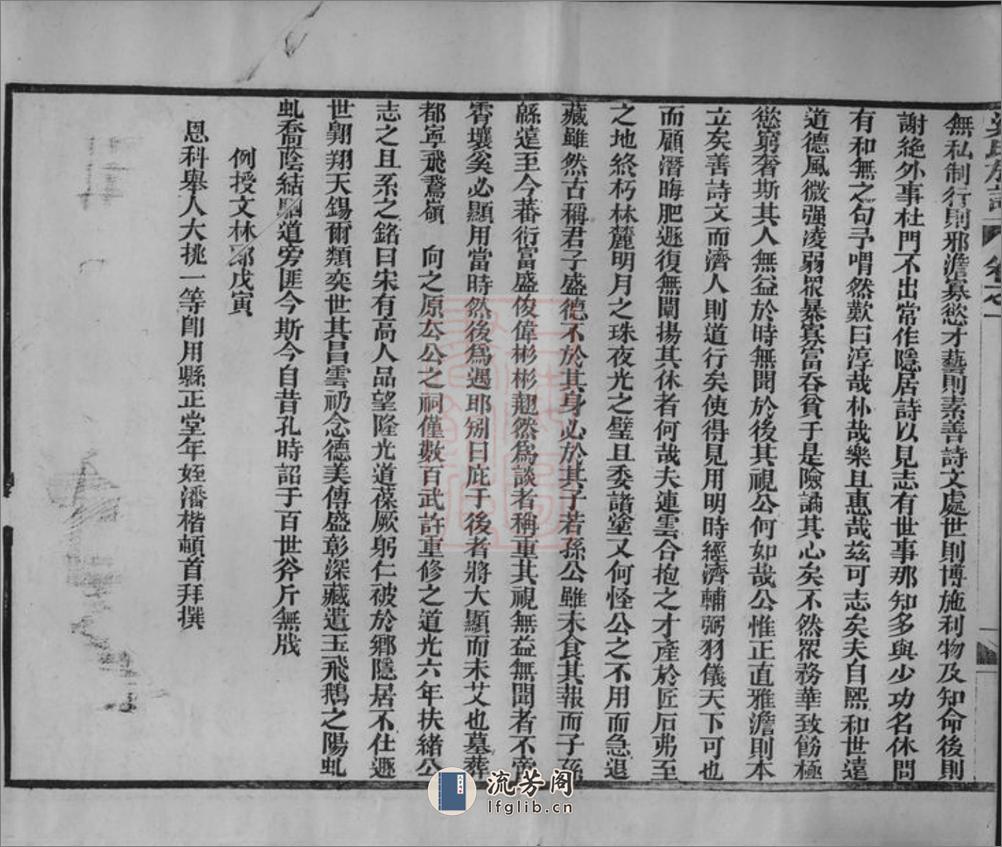 氏族譜 卷之一
無私制行則邪澹寡慾才藝則素善詩文處世則博施利物及知命後則
謝絕外事杜門不出常作隱居詩以見志有世事那知多與少功名休問
有和無之句予喟然歎曰淳哉朴哉樂且惠哉茲可志矣夫自熙和世遠
道德風微强凌弱眾暴寡富吞貧于是險譎其心矣不然眾務華致飭極
慾窮奢斯其人無益於時無聞於後其視公何如哉公惟正直雅澹則本
立矣善詩文而濟人則道行矣使得見用明時經濟輔弼羽儀天下可也
而顧潛晦肥遯復無闡揚其休者何哉夫連雲合抱之才產於匠石弗至
之地終朽林麓明月之珠夜光之璧且委諸塗又何怪公之不用而急退
藏雖然古稱君子盛德不於其身必於其子若孫公雖未食其報而子孫
緜遠至今蕃衍富盛俊偉彬彬翹然為談者稱重其視無益無聞者不啻
霄壤奚必顯用當時然後為遇耶矧曰庇于後者將大顯而未艾也墓葬
都寧飛鵞嶺 向之原公公之祠僅數百武許重修之道光六年扶緒公
志之且系之銘曰宋有高人品望隆光道葆厥躬仁被於鄉隱居不仕遯
世翺翔天錫爾類奕世其昌雲礽念德美傳盛彰深藏遺玉飛鵝之陽虬
虬喬陰結駟道旁匪今斯今自昔孔時詔于百世斧斤無戕
例授文林郎戊寅
恩科舉人大挑一等卽用縣正堂年姪潘楷頓首拜撰
流芳阁
lfglib.cn